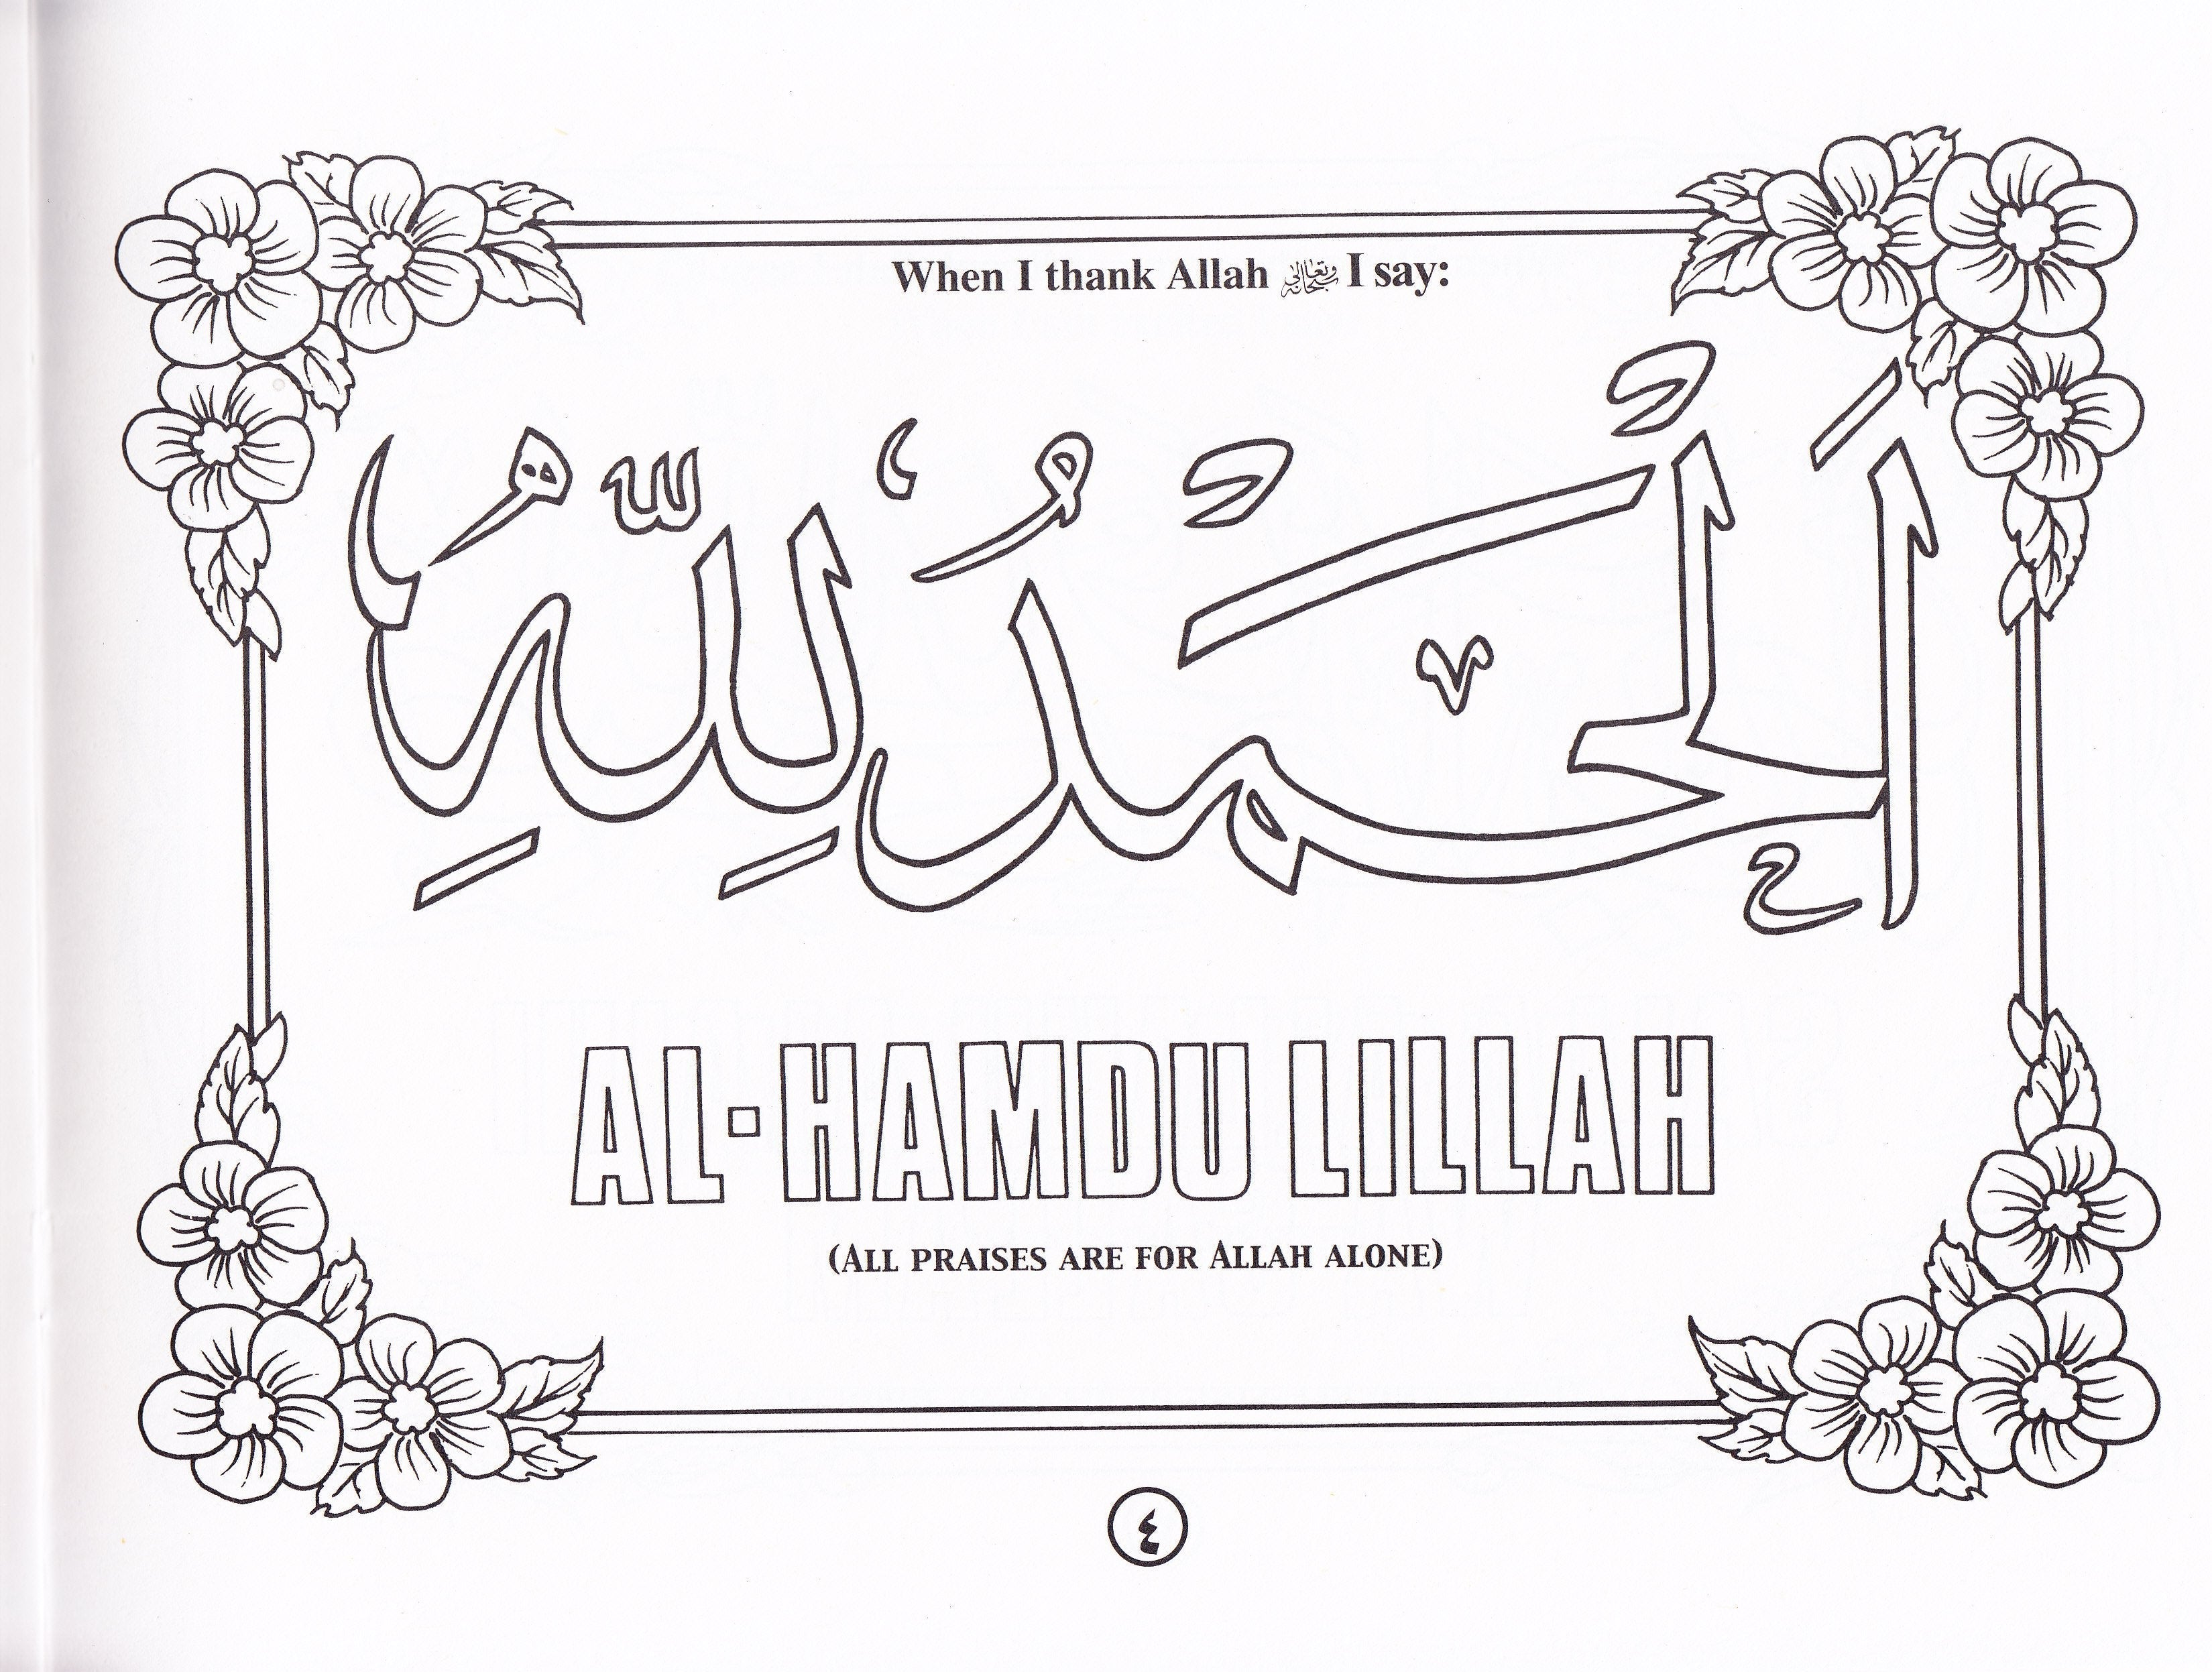 When I thank Allah سبحانه وتعالى I say:
اَلْحَمْدُ لِلّٰهِ
AL-HAMDU LILLAH
(ALL PRAISES ARE FOR ALLAH ALONE)
٤